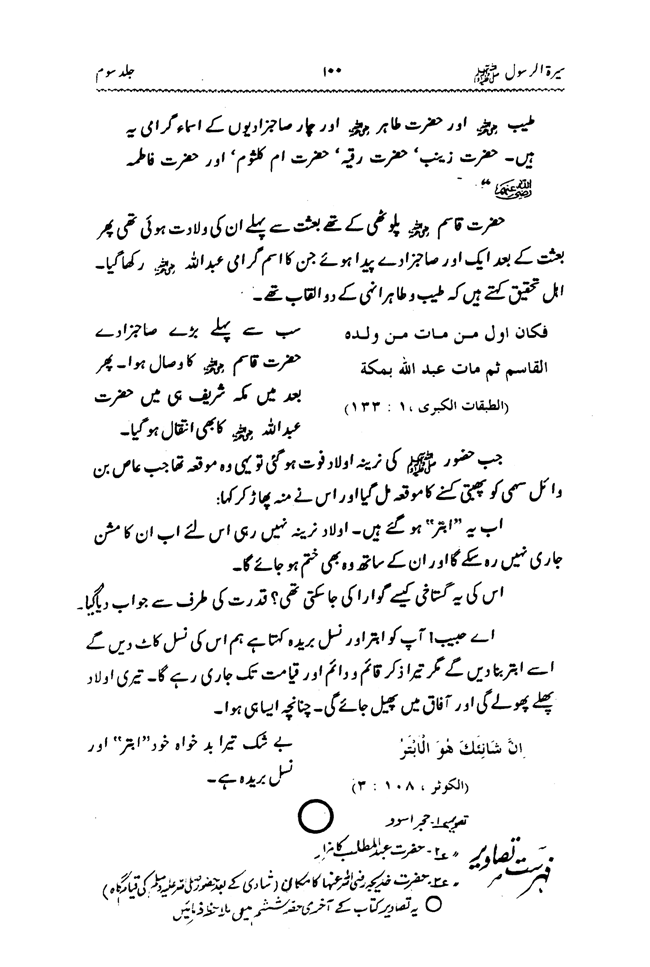 سیرۃ الرسول ﷺ ۱۰۰ جلد سوم
طیب رضی اللہ عنہ اور حضرت طاہر رضی اللہ عنہ اور چار صاحبزادیوں کے اسماء گرامی یہ
ہیں۔ حضرت زینب‘ حضرت رقیہ‘ حضرت ام کلثوم‘ اور حضرت فاطمہ
رضی اللہ عنہن“۔
حضرت قاسم رضی اللہ عنہ پلوٹھی کے تھے بعثت سے پہلے ان کی ولادت ہوئی تھی پھر
بعثت کے بعد ایک اور صاحبزادے پیدا ہوئے جن کا اسم گرامی عبداللہ رضی اللہ عنہ رکھا گیا۔
اہل تحقیق کہتے ہیں کہ طیب و طاہر انہی کے دو القاب تھے۔
فکان اول من مات من ولدہ
القاسم ثم مات عبد اللہ بمکة
(الطبقات الکبری ، ۱ : ۱۳۳)
سب سے پہلے بڑے صاحبزادے
حضرت قاسم رضی اللہ عنہ کا وصال ہوا۔ پھر
بعد میں مکہ شریف ہی میں حضرت
عبداللہ رضی اللہ عنہ کا بھی انتقال ہو گیا۔
جب حضور ﷺ کی نرینہ اولاد فوت ہو گئی تو یہی وہ موقعہ تھا جب عاص بن
وائل سہمی کو پھبتی کسنے کا موقعہ مل گیا اور اس نے منہ پھاڑ کر کہا:
اب یہ ”ابتر“ ہو گئے ہیں۔ اولاد نرینہ نہیں رہی اس لئے اب ان کا مشن
جاری نہیں رہ سکے گا اور ان کے ساتھ وہ بھی ختم ہو جائے گا۔
اس کی یہ گستاخی کیسے گوارا کی جا سکتی تھی؟ قدرت کی طرف سے جواب دیا گیا۔
اے حبیب! آپ کو ابتر اور نسل بریدہ کہتا ہے ہم اس کی نسل کاٹ دیں گے
اسے ابتر بنا دیں گے مگر تیرا ذکر قائم و دائم اور قیامت تک جاری رہے گا۔ تیری اولاد
پھلے پھولے گی اور آفاق میں پھیل جائے گی۔ چنانچہ ایسا ہی ہوا۔
اِنَّ شَانِئَكَ هُوَ الْاَبْتَرُ
(الکوثر ، ۱۰۸ : ۳)
بے شک تیرا بد خواہ خود ”ابتر“ اور
نسل بریدہ ہے۔
فہرست تصاویر
تصویر ۱۔ حجر اسود
۲۔ حضرت عبدالمطلب کا مزار
۳۔ حضرت خدیجہ رضی اللہ عنہا کا مکان (شادی کے بعد حضور صلی اللہ علیہ وسلم کی قیام گاہ)
یہ تصاویر کتاب کے آخری حصہ ششم میں ملاحظہ فرمائیں